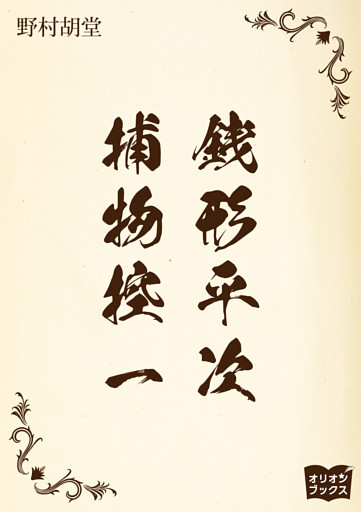 野村胡堂
銭形平次
捕物控 一
オリオン
ブックス